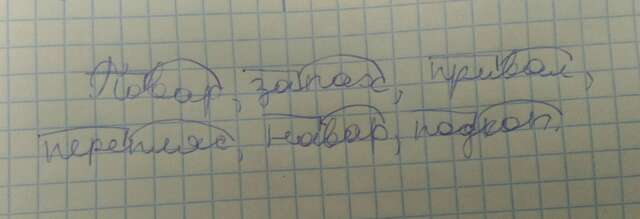 Повар, запах, привал,
перепляс, навар, подкоп.